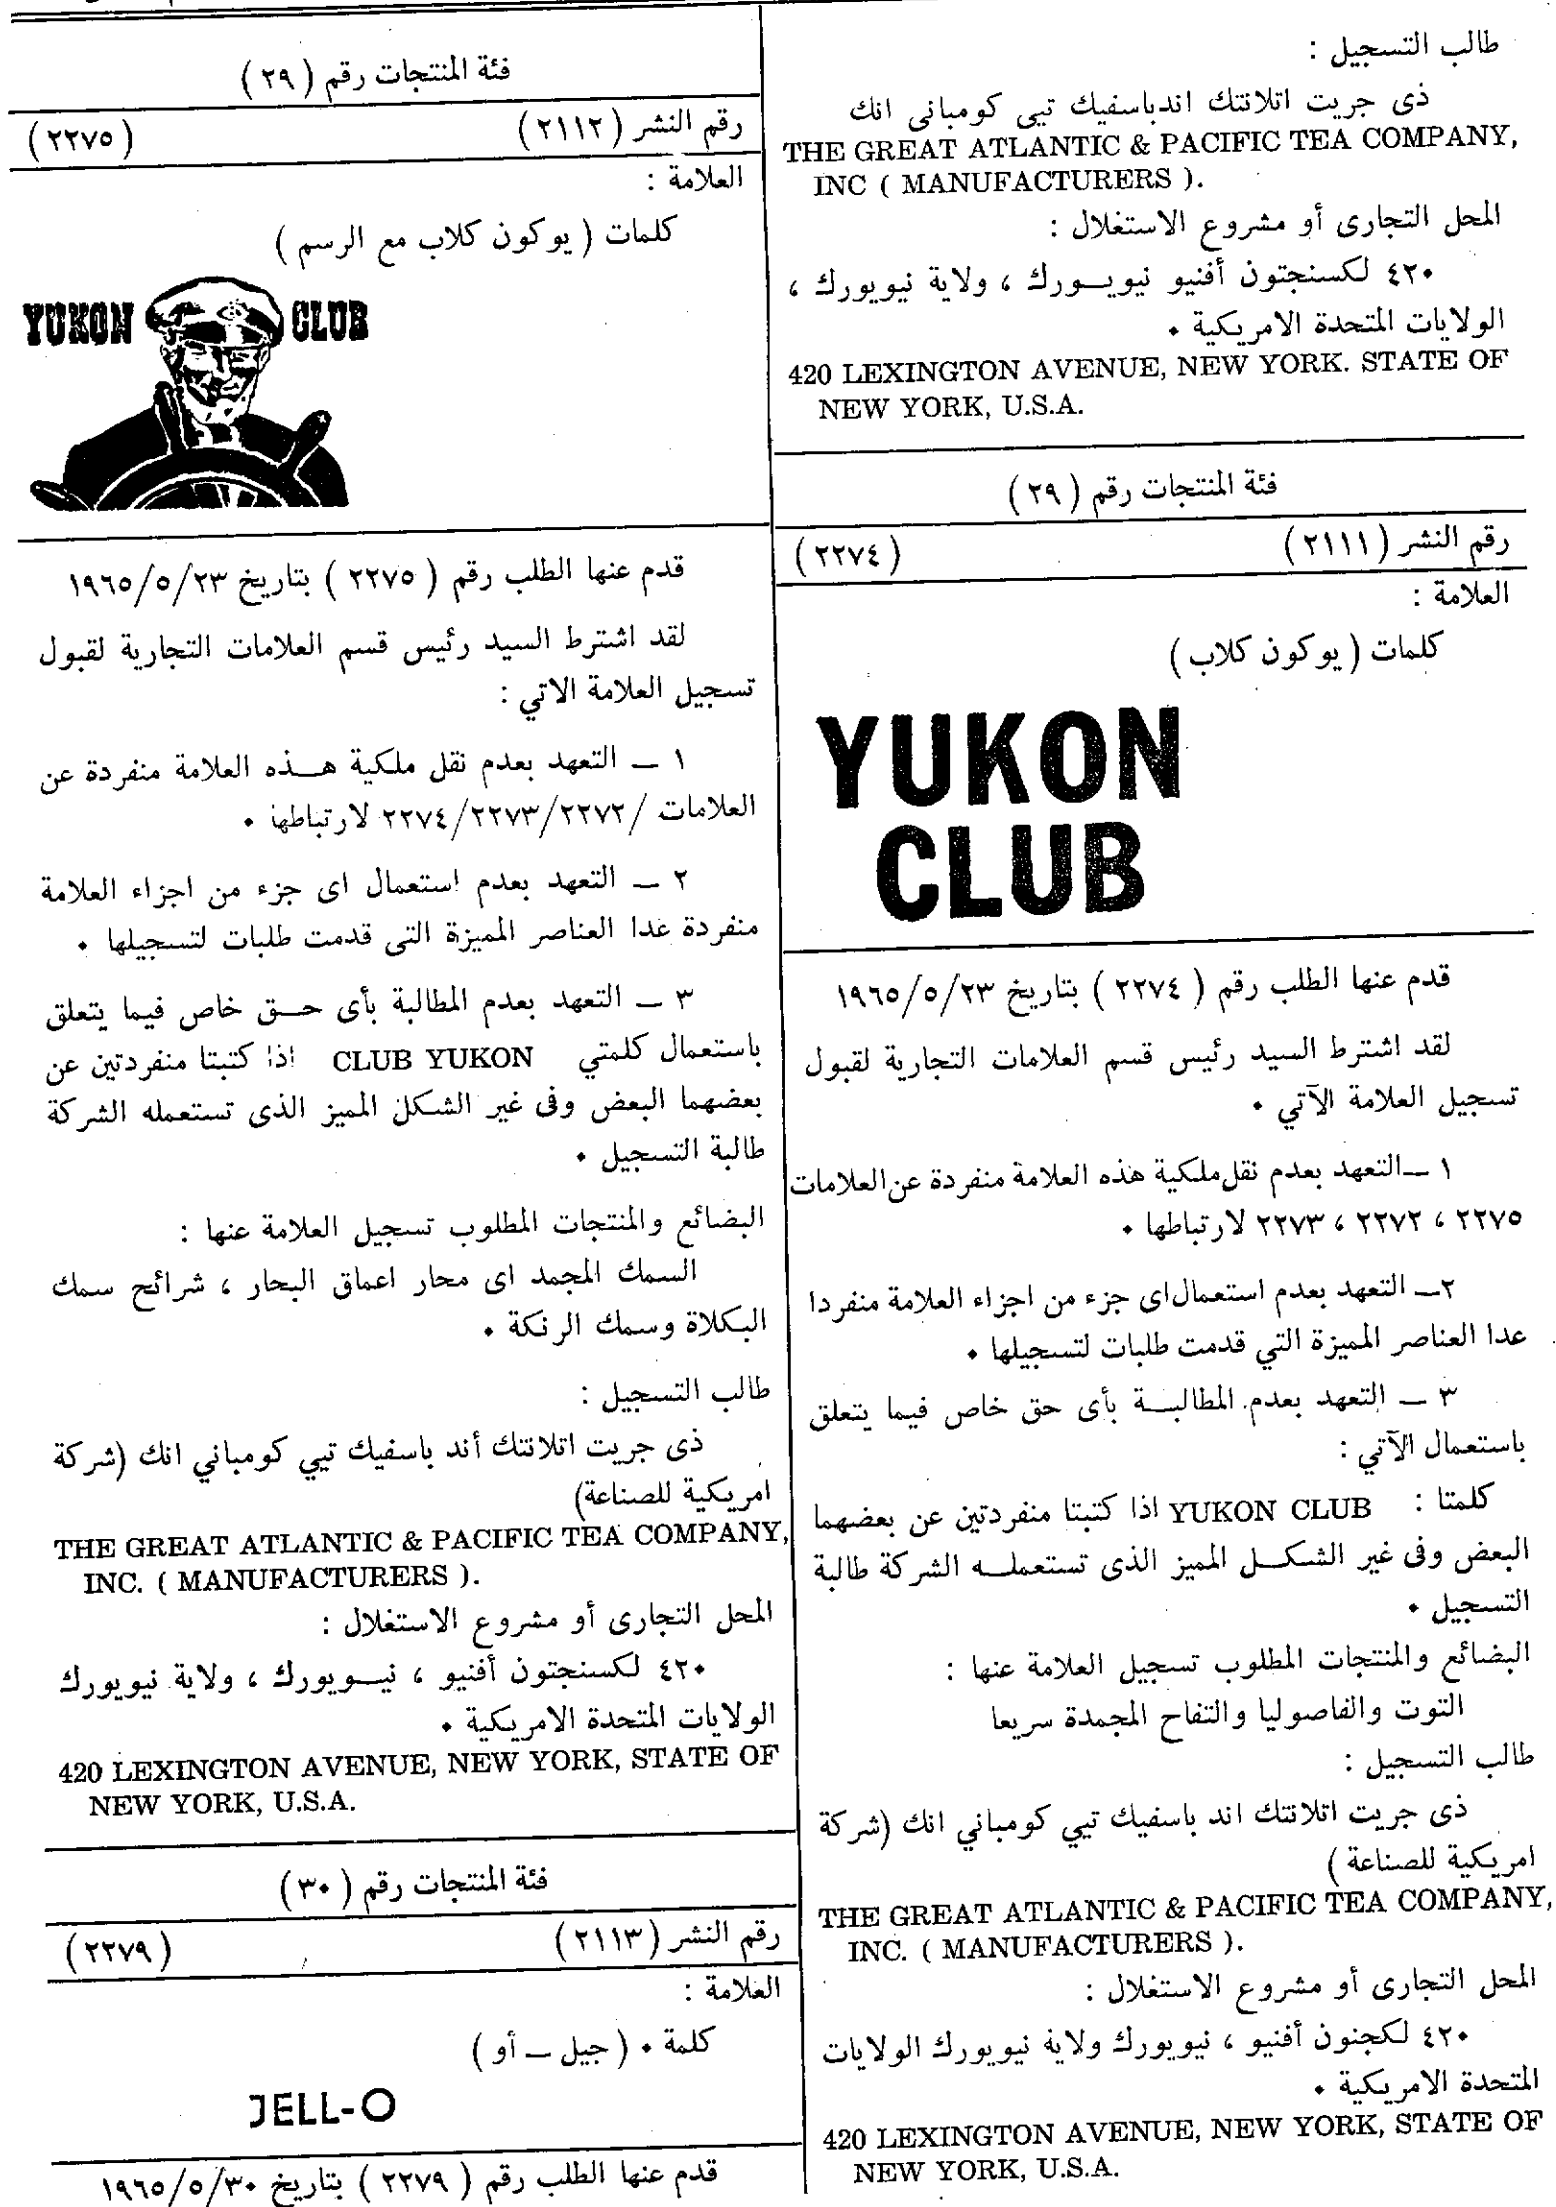 طالب التسجيل :
ذى جريت اتلانتك اندباسفيك تيى كومبانى انك
THE GREAT ATLANTIC & PACIFIC TEA COMPANY,
INC ( MANUFACTURERS ).
المحل التجارى أو مشروع الاستغلال :
٤٢٠ لكسنجتون أفنيو نيويــورك ، ولاية نيويورك ،
الولايات المتحدة الامريكية •
420 LEXINGTON AVENUE, NEW YORK. STATE OF
NEW YORK, U.S.A.
فئة المنتجات رقم ( ٢٩ )
رقم النشر ( ٢١١١ ) ( ٢٢٧٤ )
العلامة :
كلمات ( يوكون كلاب )
YUKON
CLUB
قدم عنها الطلب رقم ( ٢٢٧٤ ) بتاريخ ١٩٦٥/٥/٢٣
لقد اشترط السيد رئيس قسم العلامات التجارية لقبول
تسجيل العلامة الآتي •
١ ــ التعهد بعدم نقل ملكية هذه العلامة منفردة عن العلامات
٢٢٧٥ ، ٢٢٧٢ ، ٢٢٧٣ لارتباطها •
٢ــ التعهد بعدم استعمال اى جزء من اجزاء العلامة منفردا
عدا العناصر المميزة التي قدمت طلبات لتسجيلها •
٣ ــ التعهد بعدم المطالبــة بأى حق خاص فيما يتعلق
باستعمال الآتي :
كلمتا : YUKON CLUB اذا كتبتا منفردتين عن بعضهما
البعض وفى غير الشكــل المميز الذى تستعملــه الشركة طالبة
التسجيل •
البضائع والمنتجات المطلوب تسجيل العلامة عنها :
التوت والفاصوليا والتفاح المجمدة سريعا
طالب التسجيل :
ذى جريت اتلانتك اند باسفيك تيي كومباني انك (شركة
امريكية للصناعة )
THE GREAT ATLANTIC & PACIFIC TEA COMPANY,
INC. ( MANUFACTURERS ).
المحل التجارى أو مشروع الاستغلال :
٤٢٠ لكجنون أفنيو ، نيويورك ولاية نيويورك الولايات
المتحدة الامريكية •
420 LEXINGTON AVENUE, NEW YORK, STATE OF
NEW YORK, U.S.A.
فئة المنتجات رقم ( ٢٩ )
رقم النشر ( ٢١١٢ ) ( ٢٢٧٥ )
العلامة :
كلمات ( يوكون كلاب مع الرسم )
YUKON CLUB
قدم عنها الطلب رقم ( ٢٢٧٥ ) بتاريخ ١٩٦٥/٥/٢٣
لقد اشترط السيد رئيس قسم العلامات التجارية لقبول
تسجيل العلامة الاتي :
١ ــ التعهد بعدم نقل ملكية هــذه العلامة منفردة عن
العلامات /٢٢٧٤/٢٢٧٣/٢٢٧٢ لارتباطها •
٢ ــ التعهد بعدم استعمال اى جزء من اجزاء العلامة
منفردة عدا العناصر المميزة التى قدمت طلبات لتسجيلها •
٣ ــ التعهد بعدم المطالبة بأى حــق خاص فيما يتعلق
باستعمال كلمتي CLUB YUKON اذا كتبتا منفردتين عن
بعضهما البعض وفى غير الشكل المميز الذى تستعمله الشركة
طالبة التسجيل •
البضائع والمنتجات المطلوب تسجيل العلامة عنها :
السمك المجمد اى محار اعماق البحار ، شرائح سمك
البكلاة وسمك الرنكة •
طالب التسجيل :
ذى جريت اتلانتك أند باسفيك تيي كومباني انك (شركة
امريكية للصناعة)
THE GREAT ATLANTIC & PACIFIC TEA COMPANY,
INC. ( MANUFACTURERS ).
المحل التجارى أو مشروع الاستغلال :
٤٢٠ لكسنجتون أفنيو ، نيــويورك ، ولاية نيويورك
الولايات المتحدة الامريكية •
420 LEXINGTON AVENUE, NEW YORK, STATE OF
NEW YORK, U.S.A.
فئة المنتجات رقم ( ٣٠ )
رقم النشر ( ٢١١٣ ) ( ٢٢٧٩ )
العلامة :
كلمة • ( جيل ــ أو )
JELL-O
قدم عنها الطلب رقم ( ٢٢٧٩ ) بتاريخ ١٩٦٥/٥/٣٠